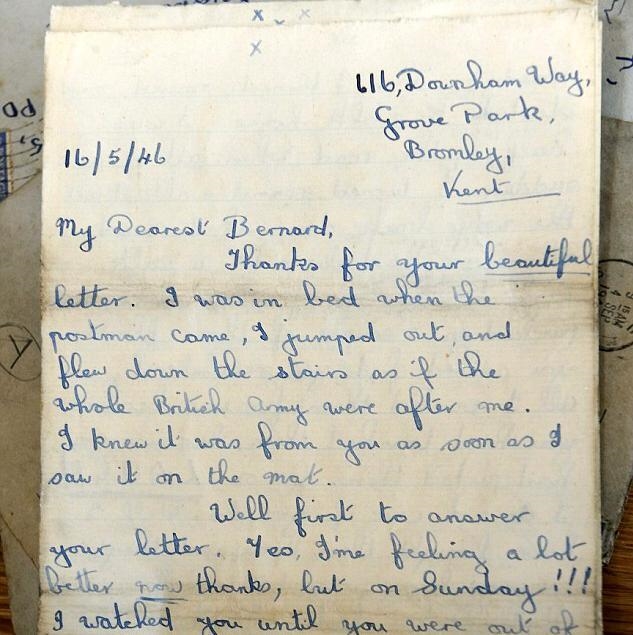 x x
x
616, Downham Way,
Grove Park,
Bromley,
Kent
16/5/46
My Dearest Bernard,
Thanks for your beautiful
letter. I was in bed when the
postman came, I jumped out, and
flew down the stairs as if the
whole British Army were after me.
I knew it was from you as soon as I
saw it on the mat.
Well first to answer
your letter. Yes, I'me feeling a lot
better now thanks, but on Sunday!!!
I watched you until you were out of
PO
A